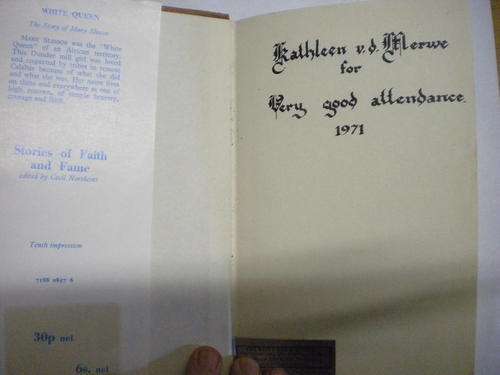 WHITE QUEEN
The Story of Mary Slessor
Mary Slessor was the "White
Queen" of an African territory.
This Dundee mill girl was loved
and respected by tribes in remote
Calabar because of what she did
and what she was. Her name lives
on there and everywhere as one of
high renown, of simple bravery,
courage and faith.
Stories of Faith
and Fame
edited by Cecil Northcott
Tenth impression
7188 0847 6
30p net
6s. net
Kathleen v.d. Merwe
for
Very good attendance.
1971